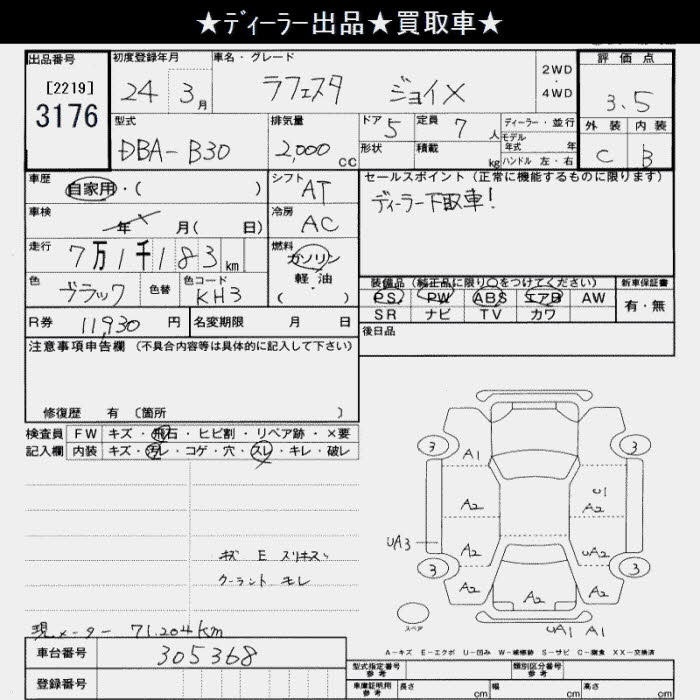 ★ディーラー出品★買取車★
出品番号 初度登録年月 車名・グレード 評価点
[2219] 24 3月 ラフェスタ ジョイX 2WD・4WD 3.5
3176
型式 排気量 ドア 定員 ディーラー・並行 外装 内装
DBA-B30 2,000cc 5 7人 モデル年式 年 C B
形状 積載 kg ハンドル 左・右
車歴 自家用・( ) シフト AT セールスポイント (正常に機能するものに限ります)
ディーラー下取車!
車検 年 月( 日) 冷房 AC
走行 7万1千183km 燃料 ガソリン・軽油 ( )
色 ブラック 色替 色コード KH3
装備品 (純正品に限り○をつけてください) 新車保証書
PS PW ABS エアB AW 有・無
SR ナビ TV カワ
R券 11,930円 名変期限 月 日 後日品
注意事項申告欄 (不具合内容等は具体的に記入して下さい)
修復歴 有 〔箇所 〕
検査員 FW キズ・飛石・ヒビ割・リペア跡・×要
記入欄 内装 キズ・汚レ・コゲ・穴・スレ・キレ・破レ
3 A1 3
A2 U1 A2
UA3 A2 UA2
3 A2 A2 A2 3
スペア UA1 A1
キズ E スリキズ
クーラント モレ
現メーター 71,204km
A-キズ E-エクボ U-凹み W-補修跡 S-サビ C-腐食 XX-交換済
車台番号 305368 型式指定番号 参考 類別区分番号 参考
登録番号 車庫証明用 参考 長さ cm 幅 cm 高さ cm